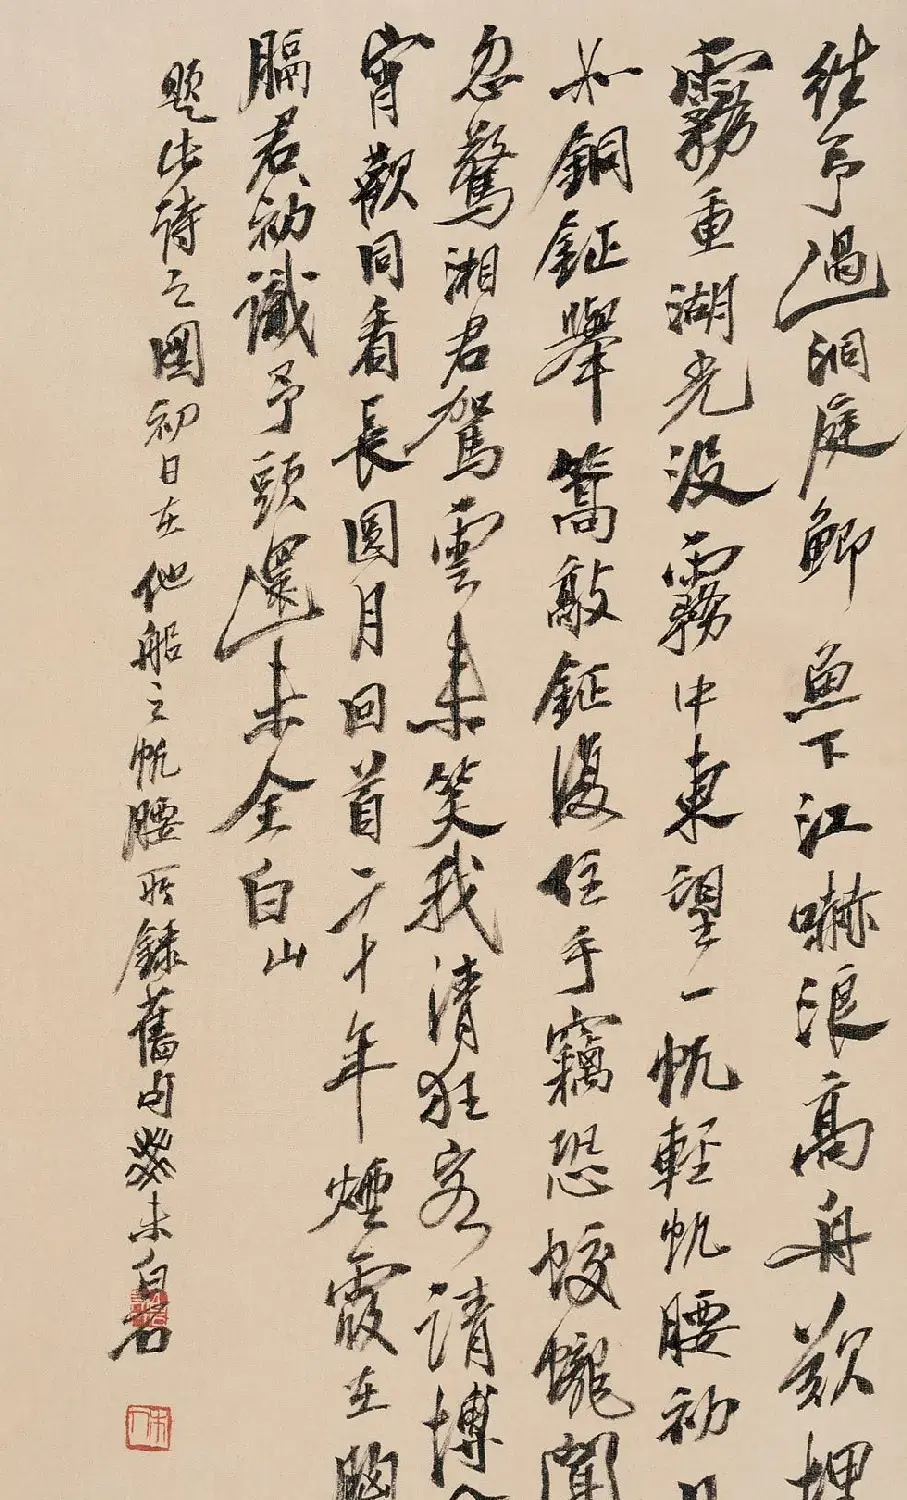 往予過洞庭鯽魚下江嚇浪高舟欺埋
霧重湖光沒霧中東望一帆輕帆腰初日
如銅鉦舉篙敲鉦復住手竊恐蛟龍聞
忽驚湘君駕雲未笑我清狂客請博今
宵歡同看長圓月回首二十年煙霞在胸
膈君初識予頭還未全白山
題此詩之圖初日在他船之帆腰所錄舊句癸未白石